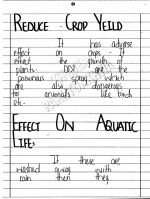 REDUCE CROP YEILD
It has adverse
effect on crops. It
effect the growth of
plants. DDT are the
poisonous spray which
are also dangerous
for animals like birds
etc.
EFFECT ON AQUATIC
LIFE:
If these are
washed away with
rain then they